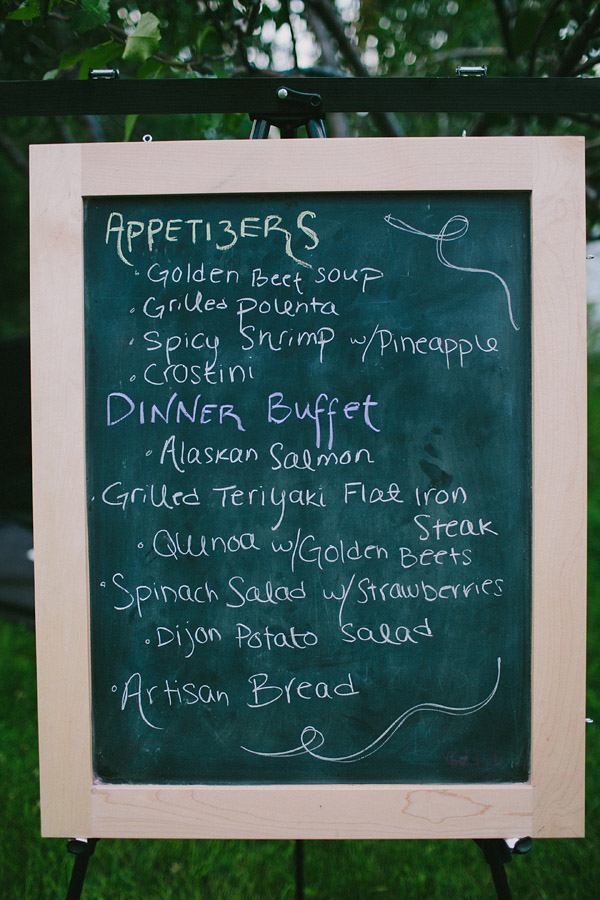 APPETIZERS
• Golden Beet Soup
• Grilled Polenta
• Spicy Shrimp w/Pineapple
• Crostini
DINNER Buffet
• Alaskan Salmon
• Grilled Teriyaki Flat Iron
Steak
• Quinoa w/Golden Beets
• Spinach Salad w/Strawberries
• Dijon Potato Salad
• Artisan Bread